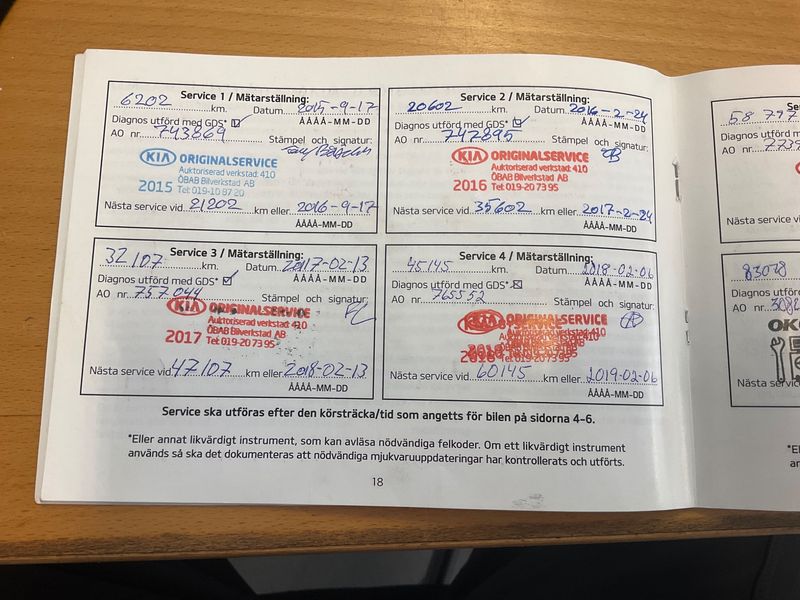 Service 1 / Mätarställning:
6202 km. Datum 2015-9-17
Diagnos utförd med GDS* ÅÅÅÅ-MM-DD
AO nr. 743869 Stämpel och signatur:
KIA ORIGINALSERVICE
Auktoriserad verkstad: 410
ÖBAB Bilverkstad AB
2015 Tel: 019-10 87 20
Nästa service vid 21202 km eller 2016-9-17
ÅÅÅÅ-MM-DD
Service 2 / Mätarställning:
20602 km. Datum 2016-2-24
Diagnos utförd med GDS* ÅÅÅÅ-MM-DD
AO nr. 747895 Stämpel och signatur:
KIA ORIGINALSERVICE
Auktoriserad verkstad: 410
ÖBAB Bilverkstad AB
2016 Tel: 019-20 73 95
Nästa service vid 35602 km eller 2017-2-24
ÅÅÅÅ-MM-DD
Service 3 / Mätarställning:
32107 km. Datum 2017-02-13
Diagnos utförd med GDS* ÅÅÅÅ-MM-DD
AO nr. 757044 Stämpel och signatur:
KIA ORIGINALSERVICE
Auktoriserad verkstad: 410
ÖBAB Bilverkstad AB
2017 Tel: 019-20 73 95
Nästa service vid 47107 km eller 2018-02-13
ÅÅÅÅ-MM-DD
Service 4 / Mätarställning:
45145 km. Datum 2018-02-06
Diagnos utförd med GDS* ÅÅÅÅ-MM-DD
AO nr. 765552 Stämpel och signatur:
KIA ORIGINALSERVICE
Nästa service vid 60145 km eller 2019-02-06
ÅÅÅÅ-MM-DD
Service ska utföras efter den körsträcka/tid som angetts för bilen på sidorna 4-6.
*Eller annat likvärdigt instrument, som kan avläsa nödvändiga felkoder. Om ett likvärdigt instrument
används så ska det dokumenteras att nödvändiga mjukvaruuppdateringar har kontrollerats och utförts.
18
58 797
Diagnos utförd m
AO nr.
Nästa service vi
83078
Diagnos utförd
AO nr.
Nästa service